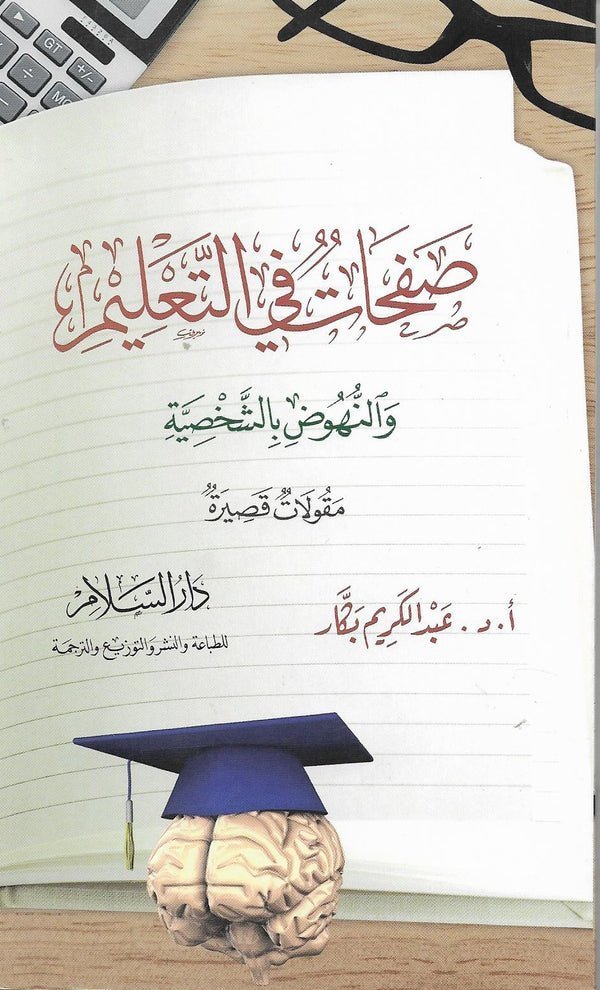 صَفَحَاتٌ فِي التَّعْلِيمِ
وَالنُّهُوضِ بِالشَّخْصِيَّةِ
مَقُولَاتٌ قَصِيرَةٌ
أ.د. عَبْد الكَرِيم بَكَّار
دَارُ السَّلَامِ
للطباعة والنشر والتوزيع والترجمة
GT
+/-
÷